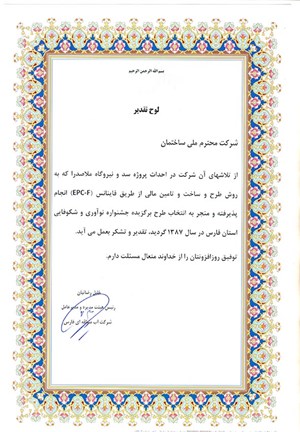 بسم‌الله الرحمن الرحیم
لوح تقدیر
شرکت محترم ملی ساختمان
از تلاشهای آن شرکت در احداث پروژه سد و نیروگاه ملاصدرا که به
روش طرح و ساخت و تامین مالی از طریق فاینانس (EPC-F) انجام
پذیرفته و منجر به انتخاب طرح برگزیده جشنواره نوآوری و شکوفایی
استان فارس در سال ۱۳۸۷ گردید، تقدیر و تشکر بعمل می آید.
توفیق روزافزونتان را از خداوند متعال مسئلت دارم.
رئیس هیئت مدیره و مدیرعامل
شرکت آب منطقه ای فارس